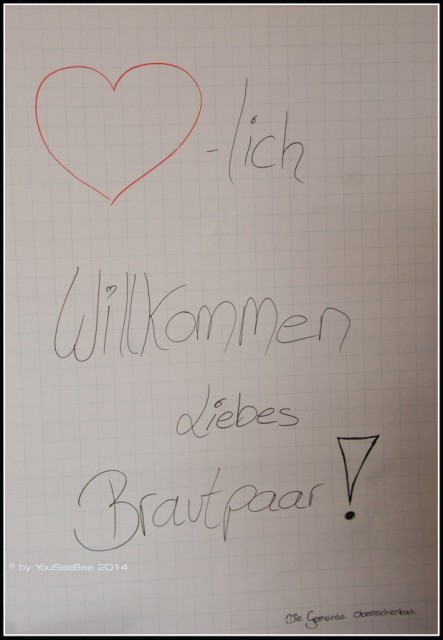 -lich
Willkommen
Liebes
Brautpaar!
© by YouSeeBee 2014
Die Gemeinde Oberreichenbach